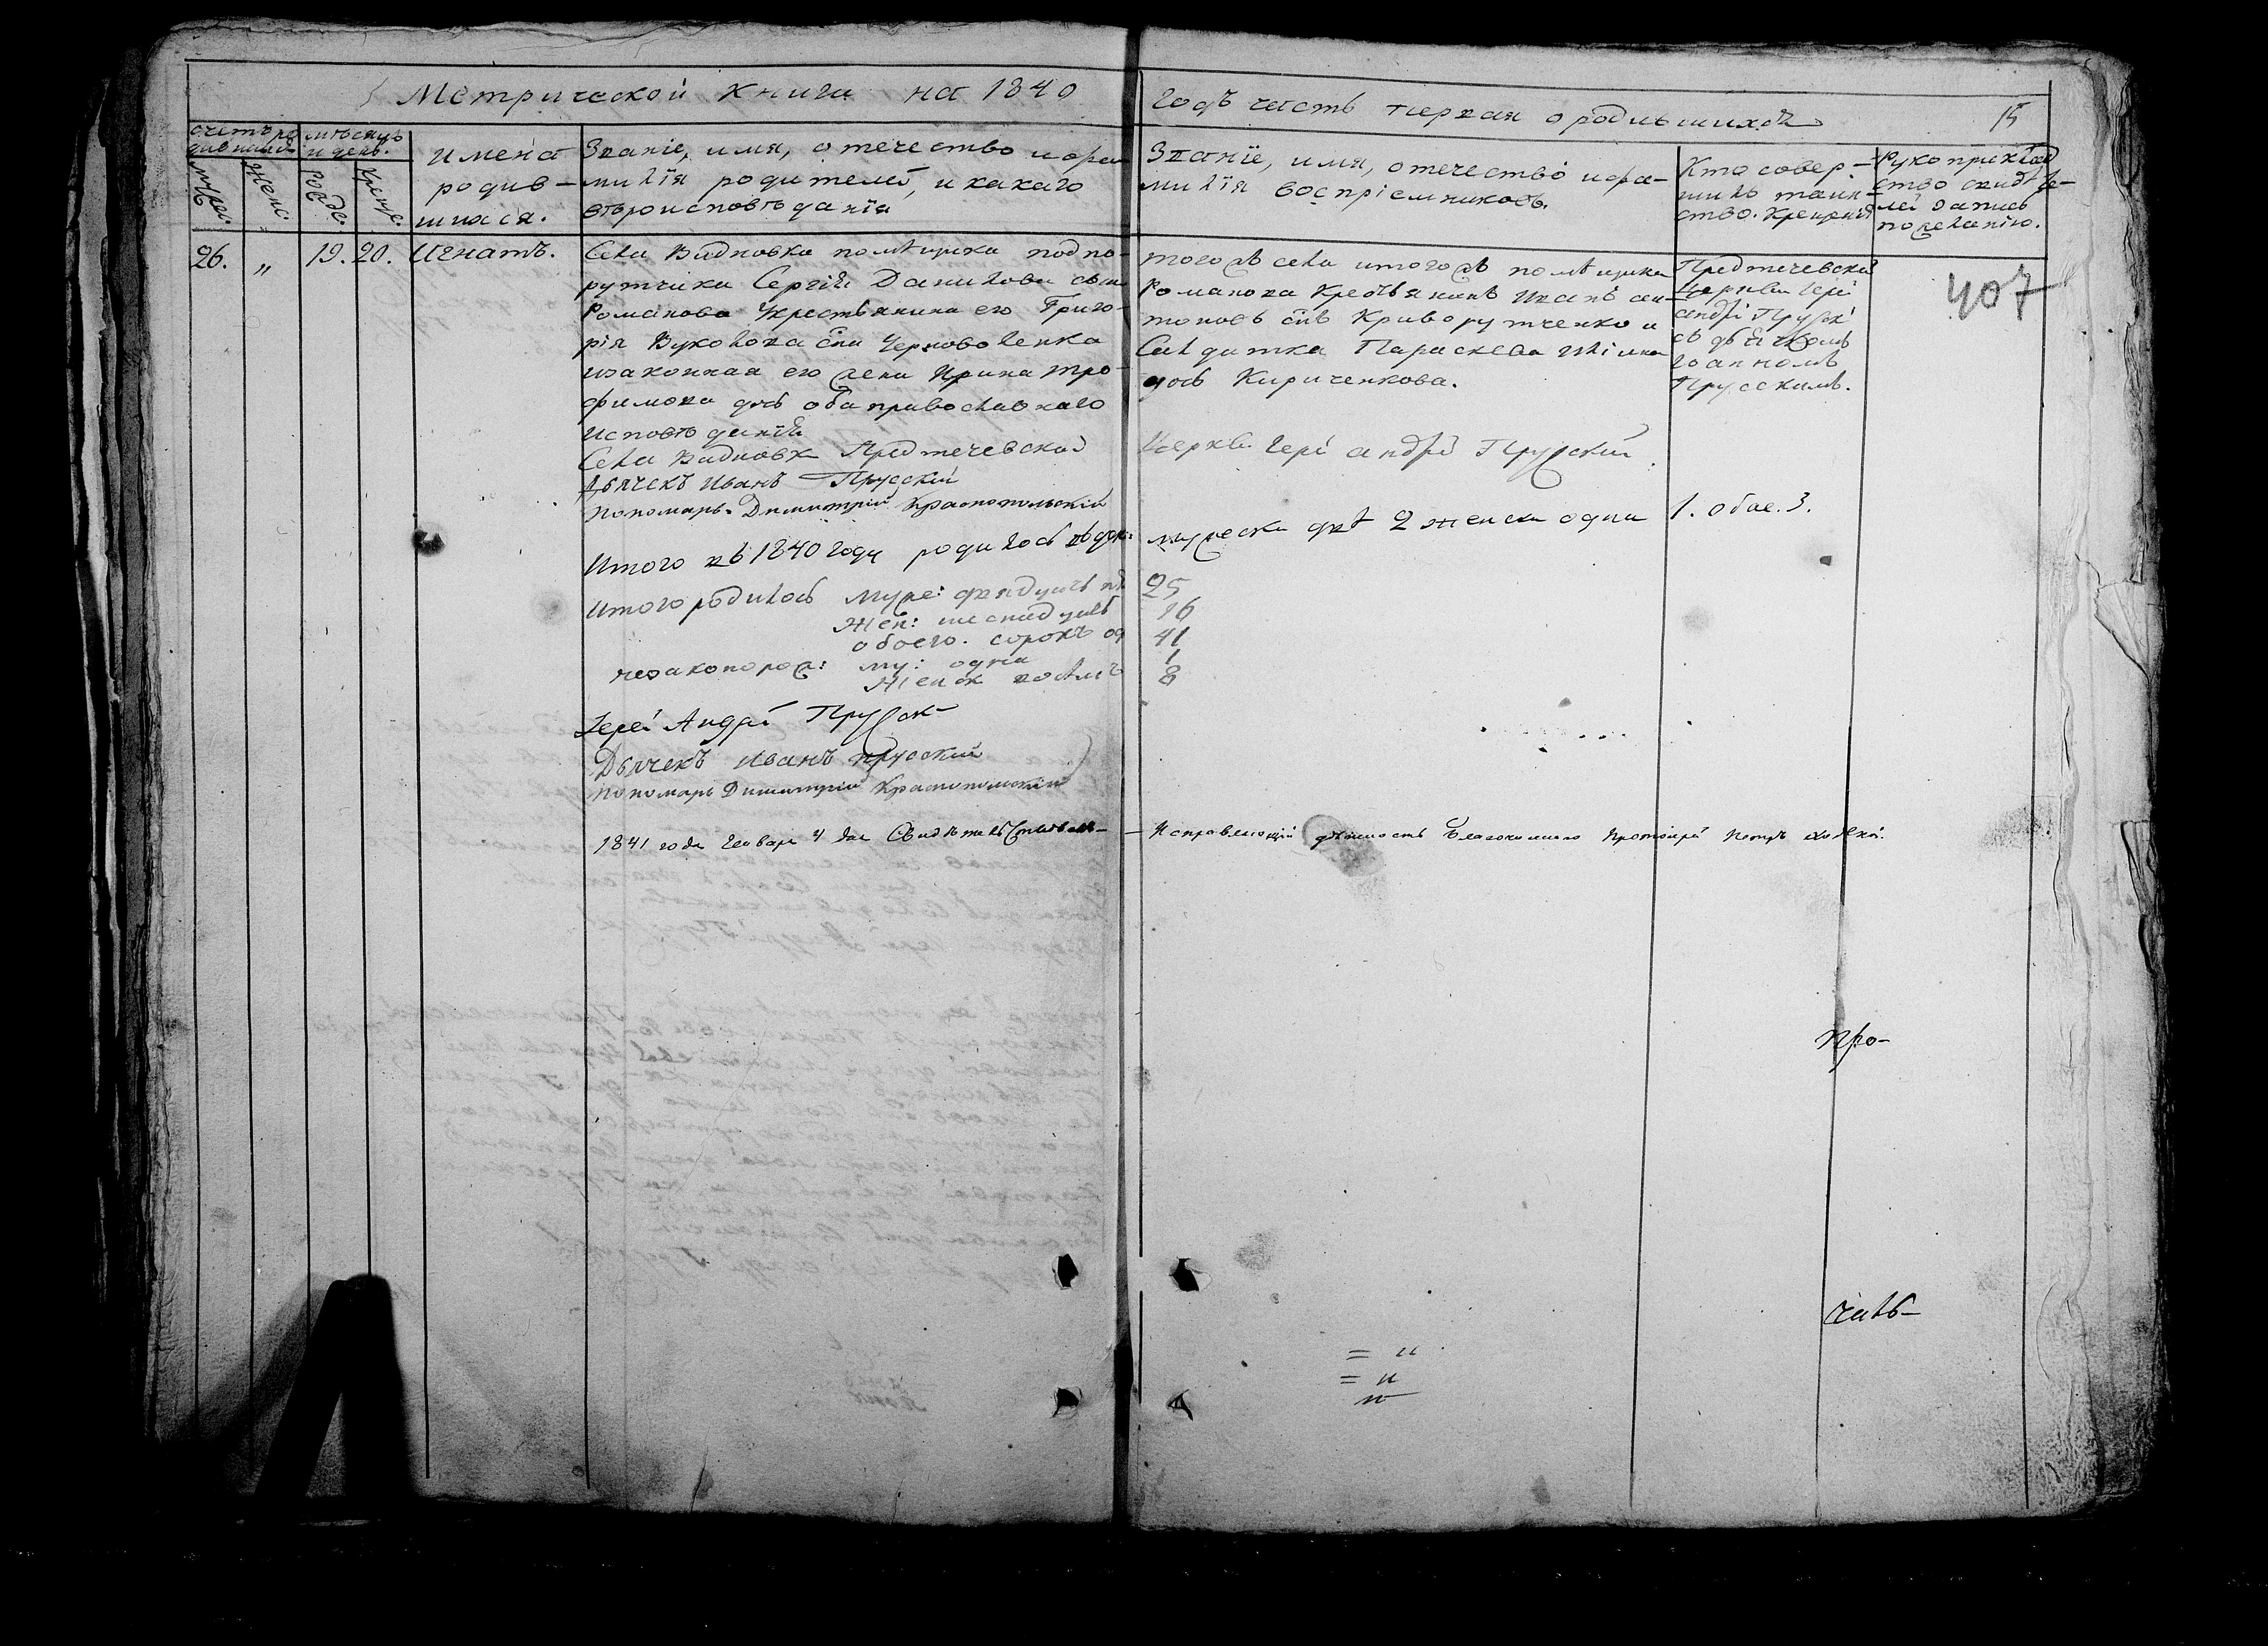 Метрической книги на 1840
годъ часть первая о родившихся
15
счетъ ро
дившихся
мѣсяцъ
и день.
муже.
женс.
рожде.
креще.
имена
родив-
шихся.
Званіе, имя, отечество и фа
милїя родителей, и какаго
вѣроисповѣданїя
Званїе, имя, отечество и фа-
милїя воспрїемниковъ.
Кто совер-
шилъ таин-
ство. крещенія
Рукоприклад
ство свидѣте-
лей записи
по желанію.
26.
"
19.
20.
Игнатъ.
Села Видновка помѣщика подпо-
рутчика Сергїя Данилова сына
Романова крестьянина его Григо-
рія Вуколова сна Черноволенка
и законная его жена Ирина Тро-
фимова дчь оба православнаго
исповѣданія
тогожъ села и тогожъ помѣщика
Романова крестьянинъ Иванъ Ан-
тоновъ снъ Криворутченко и
Салдатка Параскева
дочь Кириченкова.
Предтечевской
Церкви Іерей
андрей Прускій
съ дьячкомъ
Іоанномъ
Прусскимъ.
407
Села Видновк Предтечевской
Церкви Іерей андрей Прусскій
Дьячекъ Иванъ Прусскій
Пономарь Димитрій Краснопольскій
Итого въ 1840 году родилось въ дек:
мужеска два 2 женска одна 1. обое. 3.
Итого родилось муже: двадцать пя
25
жен: шеснадцать
16
обоего. сорокъ од
41
незаконорож: му: одна
1
женск восемъ
8
Іерей Андрей Прусск
Дьячекъ Иванъ Прусскій
Пономарь Димитрій Краснопольскій
1841 года Генваря 4 дня Свидѣтельствовалъ
Исправляющій должность Благочиннаго Протоіерей Петръ
Про-
чилъ-
= и
= и
и